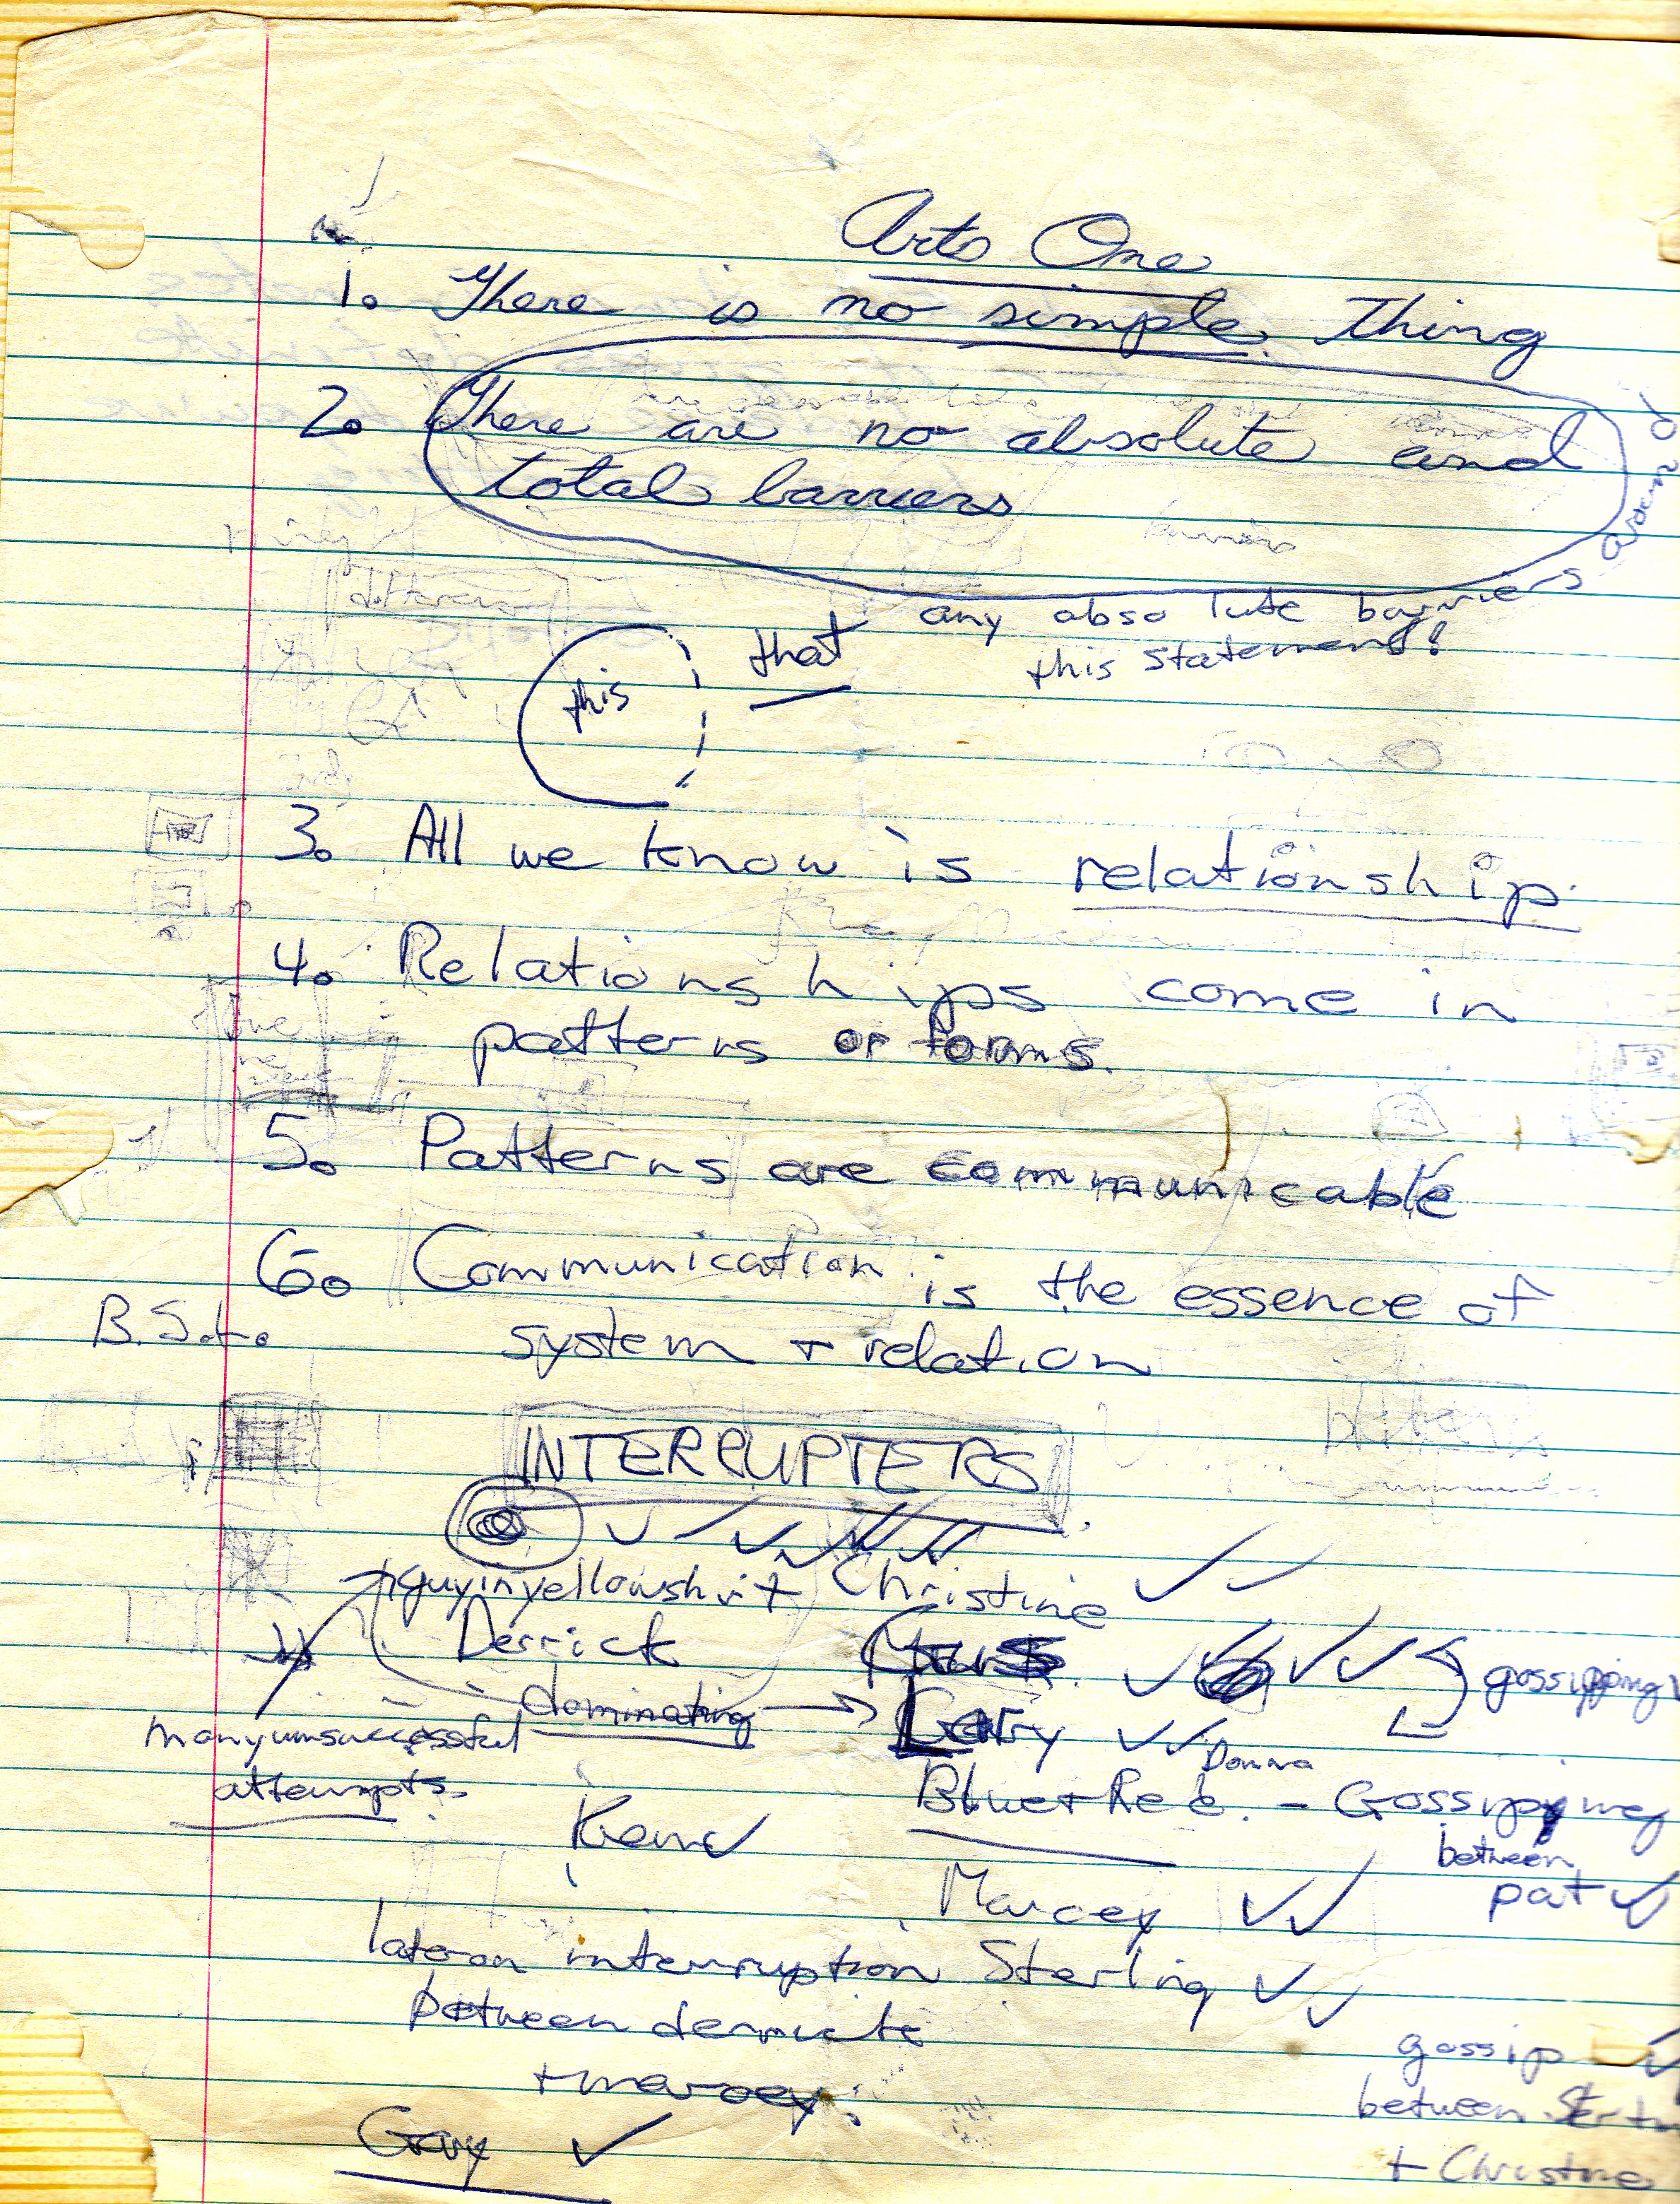 Arts One
1. There is no simple thing
2. There are no absolute and
total barriers
around
any absolute barriers
this statement!
this
that
3. All we know is relationship.
4. Relationships come in
patterns or forms.
5. Patterns are communicable
6. Communication is the essence of
B.S.t.
system + relation
INTERRUPTERS
guy in yellow shirt Christine ✓ ✓
Derrick
gossipping
dominating → Larry ✓✓
many unsuccessful
attempts.
Donna
Blue + Red. - Gossipping
between
pat ✓
Marcey ✓✓
later on interruption Sterling ✓✓
between
+ marcey.
gossip
between
+ Christine
Guy ✓